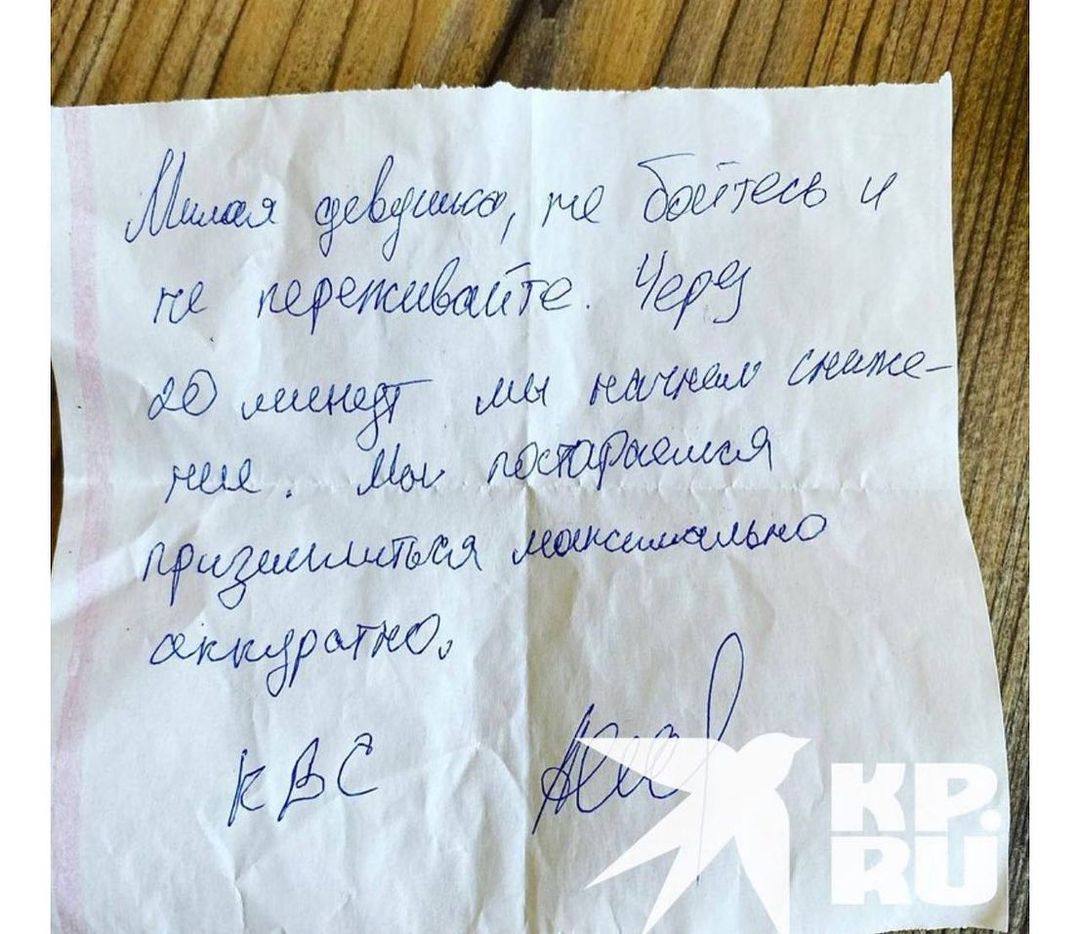 Милая девушка, не бойтесь и
не переживайте. Через
20 минут мы начнем сниже-
ние. Мы постараемся
приземлиться максимально
аккуратно.
КВС
KP.
RU